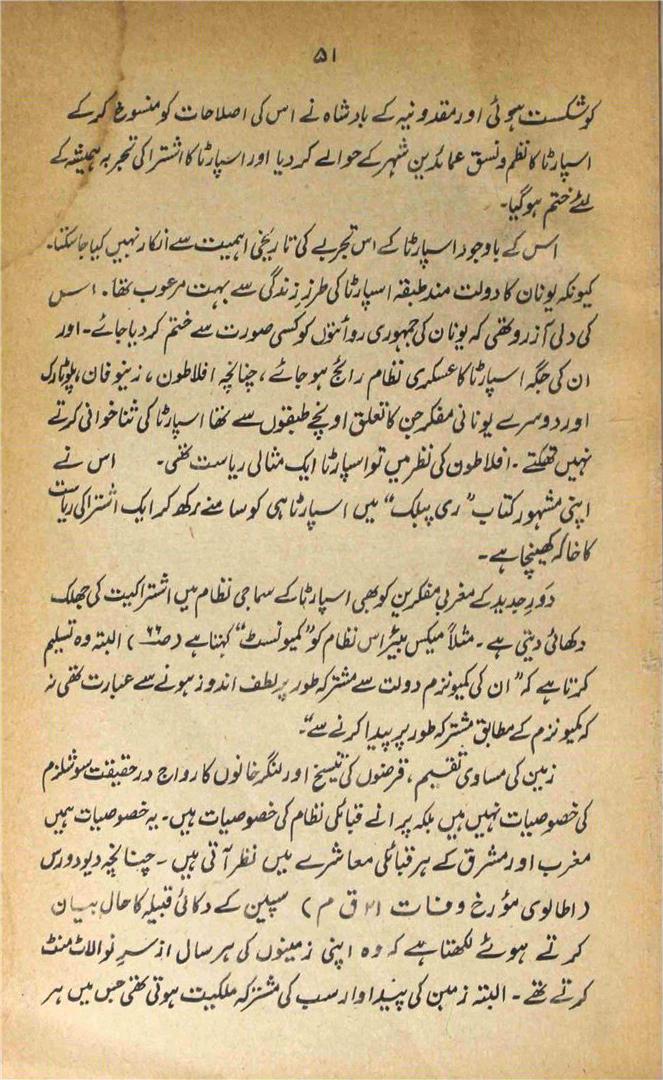 ۵۱
کو شکست ہوئی اور مقدونیہ کے بادشاہ نے اس کی اصلاحات کو منسوخ کر کے
اسپارٹا کا نظم و نسق عمائدین شہر کے حوالے کر دیا اور اسپارٹا کا اشتراکی تجربہ ہمیشہ کے
لئے ختم ہو گیا۔
اس کے باوجود اسپارٹا کے اس تجربے کی تاریخی اہمیت سے انکار نہیں کیا جا سکتا۔
کیونکہ یونان کا دولت مند طبقہ اسپارٹا کی طرز زندگی سے بہت مرعوب تھا۔ اس
کی دلی آرزو تھی کہ یونان کی جمہوری روائتوں کو کسی صورت سے ختم کر دیا جائے۔ اور
ان کی جگہ اسپارٹا کا عسکری نظام رائج ہو جائے، چنانچہ افلاطون، زینوفان، پلوٹارک
اور دوسرے یونانی مفکر جن کا تعلق اونچے طبقوں سے تھا اسپارٹا کی ثنا خوانی کرتے
نہیں تھکتے۔ افلاطون کی نظر میں تو اسپارٹا ایک مثالی ریاست تھی۔ اس نے
اپنی مشہور کتاب ”ری پبلک“ میں اسپارٹا ہی کو سامنے رکھ کر ایک اشتراکی ریاست
کا خاکہ کھینچا ہے۔
دَورِ جدید کے مغربی مفکرین کو بھی اسپارٹا کے سماجی نظام میں اشتراکیت کی جھلک
دکھائی دیتی ہے۔ مثلاً میکس بیئر اس نظام کو ”کمیونسٹ“ کہتا ہے (صـ ۶۶) البتہ وہ تسلیم
کرتا ہے کہ ”ان کی کمیونزم دولت سے مشترکہ طور پر لطف اندوز ہونے سے عبارت تھی نہ
کہ کمیونزم کے مطابق مشترکہ طور پر پیدا کرنے سے“۔
زمین کی مساوی تقسیم، قرضوں کی تنسیخ اور لنگر خانوں کا رواج در حقیقت سوشلزم
کی خصوصیات نہیں ہیں بلکہ پرانے قبائلی نظام کی خصوصیات ہیں۔ یہ خصوصیات ہمیں
مغرب اور مشرق کے ہر قبائلی معاشرے میں نظر آتی ہیں۔ چنانچہ دیودورس
(اطالوی مؤرخ وفات ۲۱ ق م) سپین کے دکائی قبیلہ کا حال بیان
کرتے ہوئے لکھتا ہے کہ وہ اپنی زمینوں کی ہر سال از سرِ نو الاٹ منٹ
کرتے تھے۔ البتہ زمین کی پیداوار سب کی مشترکہ ملکیت ہوتی تھی جس میں ہر